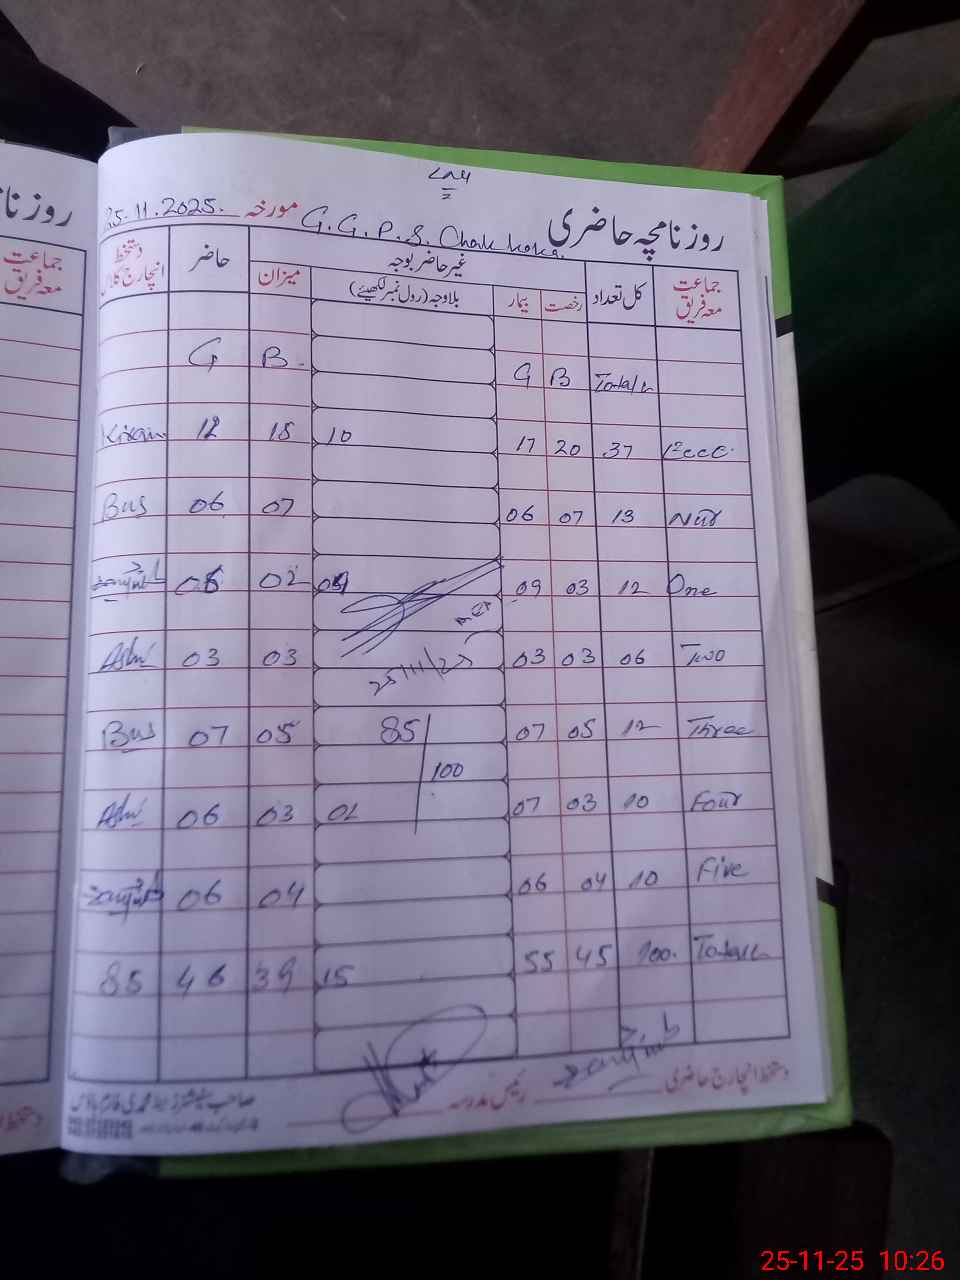 روزنامچہ حاضری
G.G.P.S. Chak
مورخہ 25.11.2025.
جماعت معہ فریق
کل تعداد
غیر حاضر بوجہ
رخصت
بیمار
بلاوجہ (رول نمبر لکھیئے)
میزان
حاضر
دستخط انچارج کلاس
G B G B Total
12 18 10 17 20 37 ECCE
06 07 06 07 13 Nur
02 09 03 12 One
03 03 03 03 06 Two
25/11/25
07 05 85 07 05 12 Three
100
06 03 01 07 03 10 Four
06 04 06 04 10 Five
85 46 39 15 55 45 100. Total
دستخط انچارج حاضری
رئیس مدرسہ
روزنا
جماعت معہ فریق
25-11-25 10:26